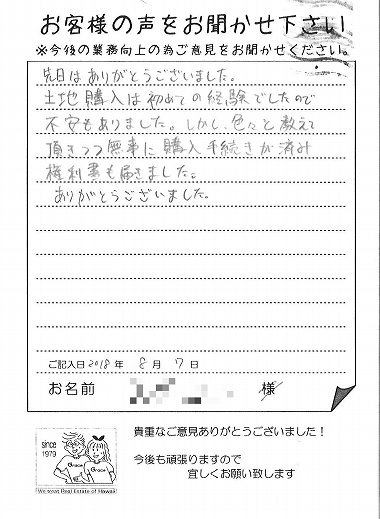 お客様の声をお聞かせ下さい
※今後の業務向上の為ご意見をお聞かせください。
先日はありがとうございました。
土地購入は初めての経験でしたので
不安もありました。しかし、色々と教えて
頂きつつ無事に購入手続きが済み
権利書も届きました。
ありがとうございました。
ご記入日 2018 年 8 月 7 日
お名前 様
貴重なご意見ありがとうございました！
since
1979
今後も頑張りますので
宜しくお願い致します
Grace Grace
We treat Real Estate of Hawaii